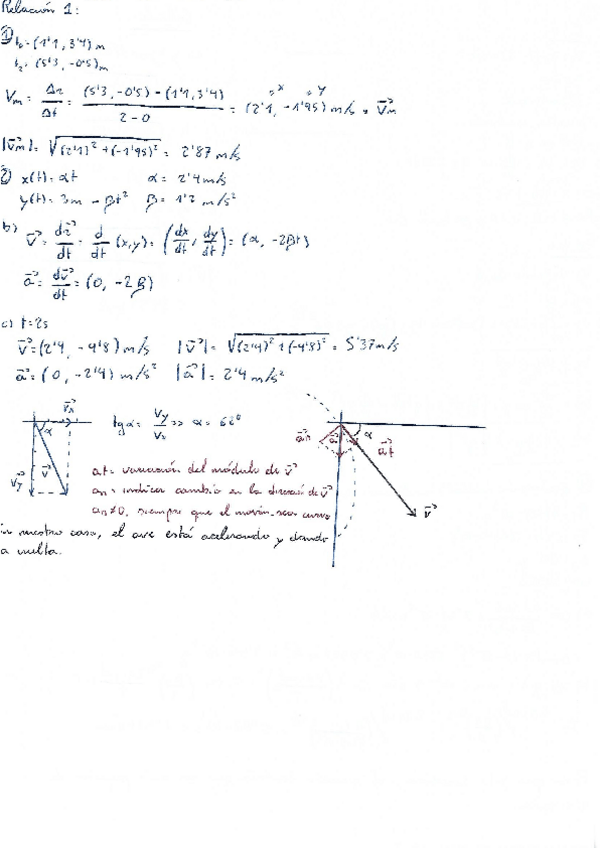 Relación 1:
1) t₀ = (1'1, 3'4) m
t₂ = (5'3, -0'5) m
Vm = Δr/Δt = ((5'3, -0'5) - (1'1, 3'4))/(2-0) = (2'1, -1'95) m/s = V⃗m
x y
|V⃗m| = √((2'1)² + (-1'95)²) = 2'87 m/s
2) x(t) = αt α = 2'4 m/s
y(t) = 3m - βt² β = 1'2 m/s²
b) V⃗ = dr⃗/dt = d/dt (x,y) = (dx/dt, dy/dt) = (α, -2βt)
a⃗ = dv⃗/dt = (0, -2β)
c) t = 2s
V⃗ = (2'4, -4'8) m/s |V⃗| = √((2'4)² + (-4'8)²) = 5'37 m/s
a⃗ = (0, -2'4) m/s² |a⃗| = 2'4 m/s²
V⃗x α V⃗y V⃗
tg α = Vy/Vx => α = 62º
an a⃗ α a⃗t V⃗
at = variación del módulo de V⃗
an = indica cambio en la dirección de V⃗
an ≠ 0, siempre que el movim. sea curvo
en nuestro caso, el ave está acelerando y dando
a vuelta.